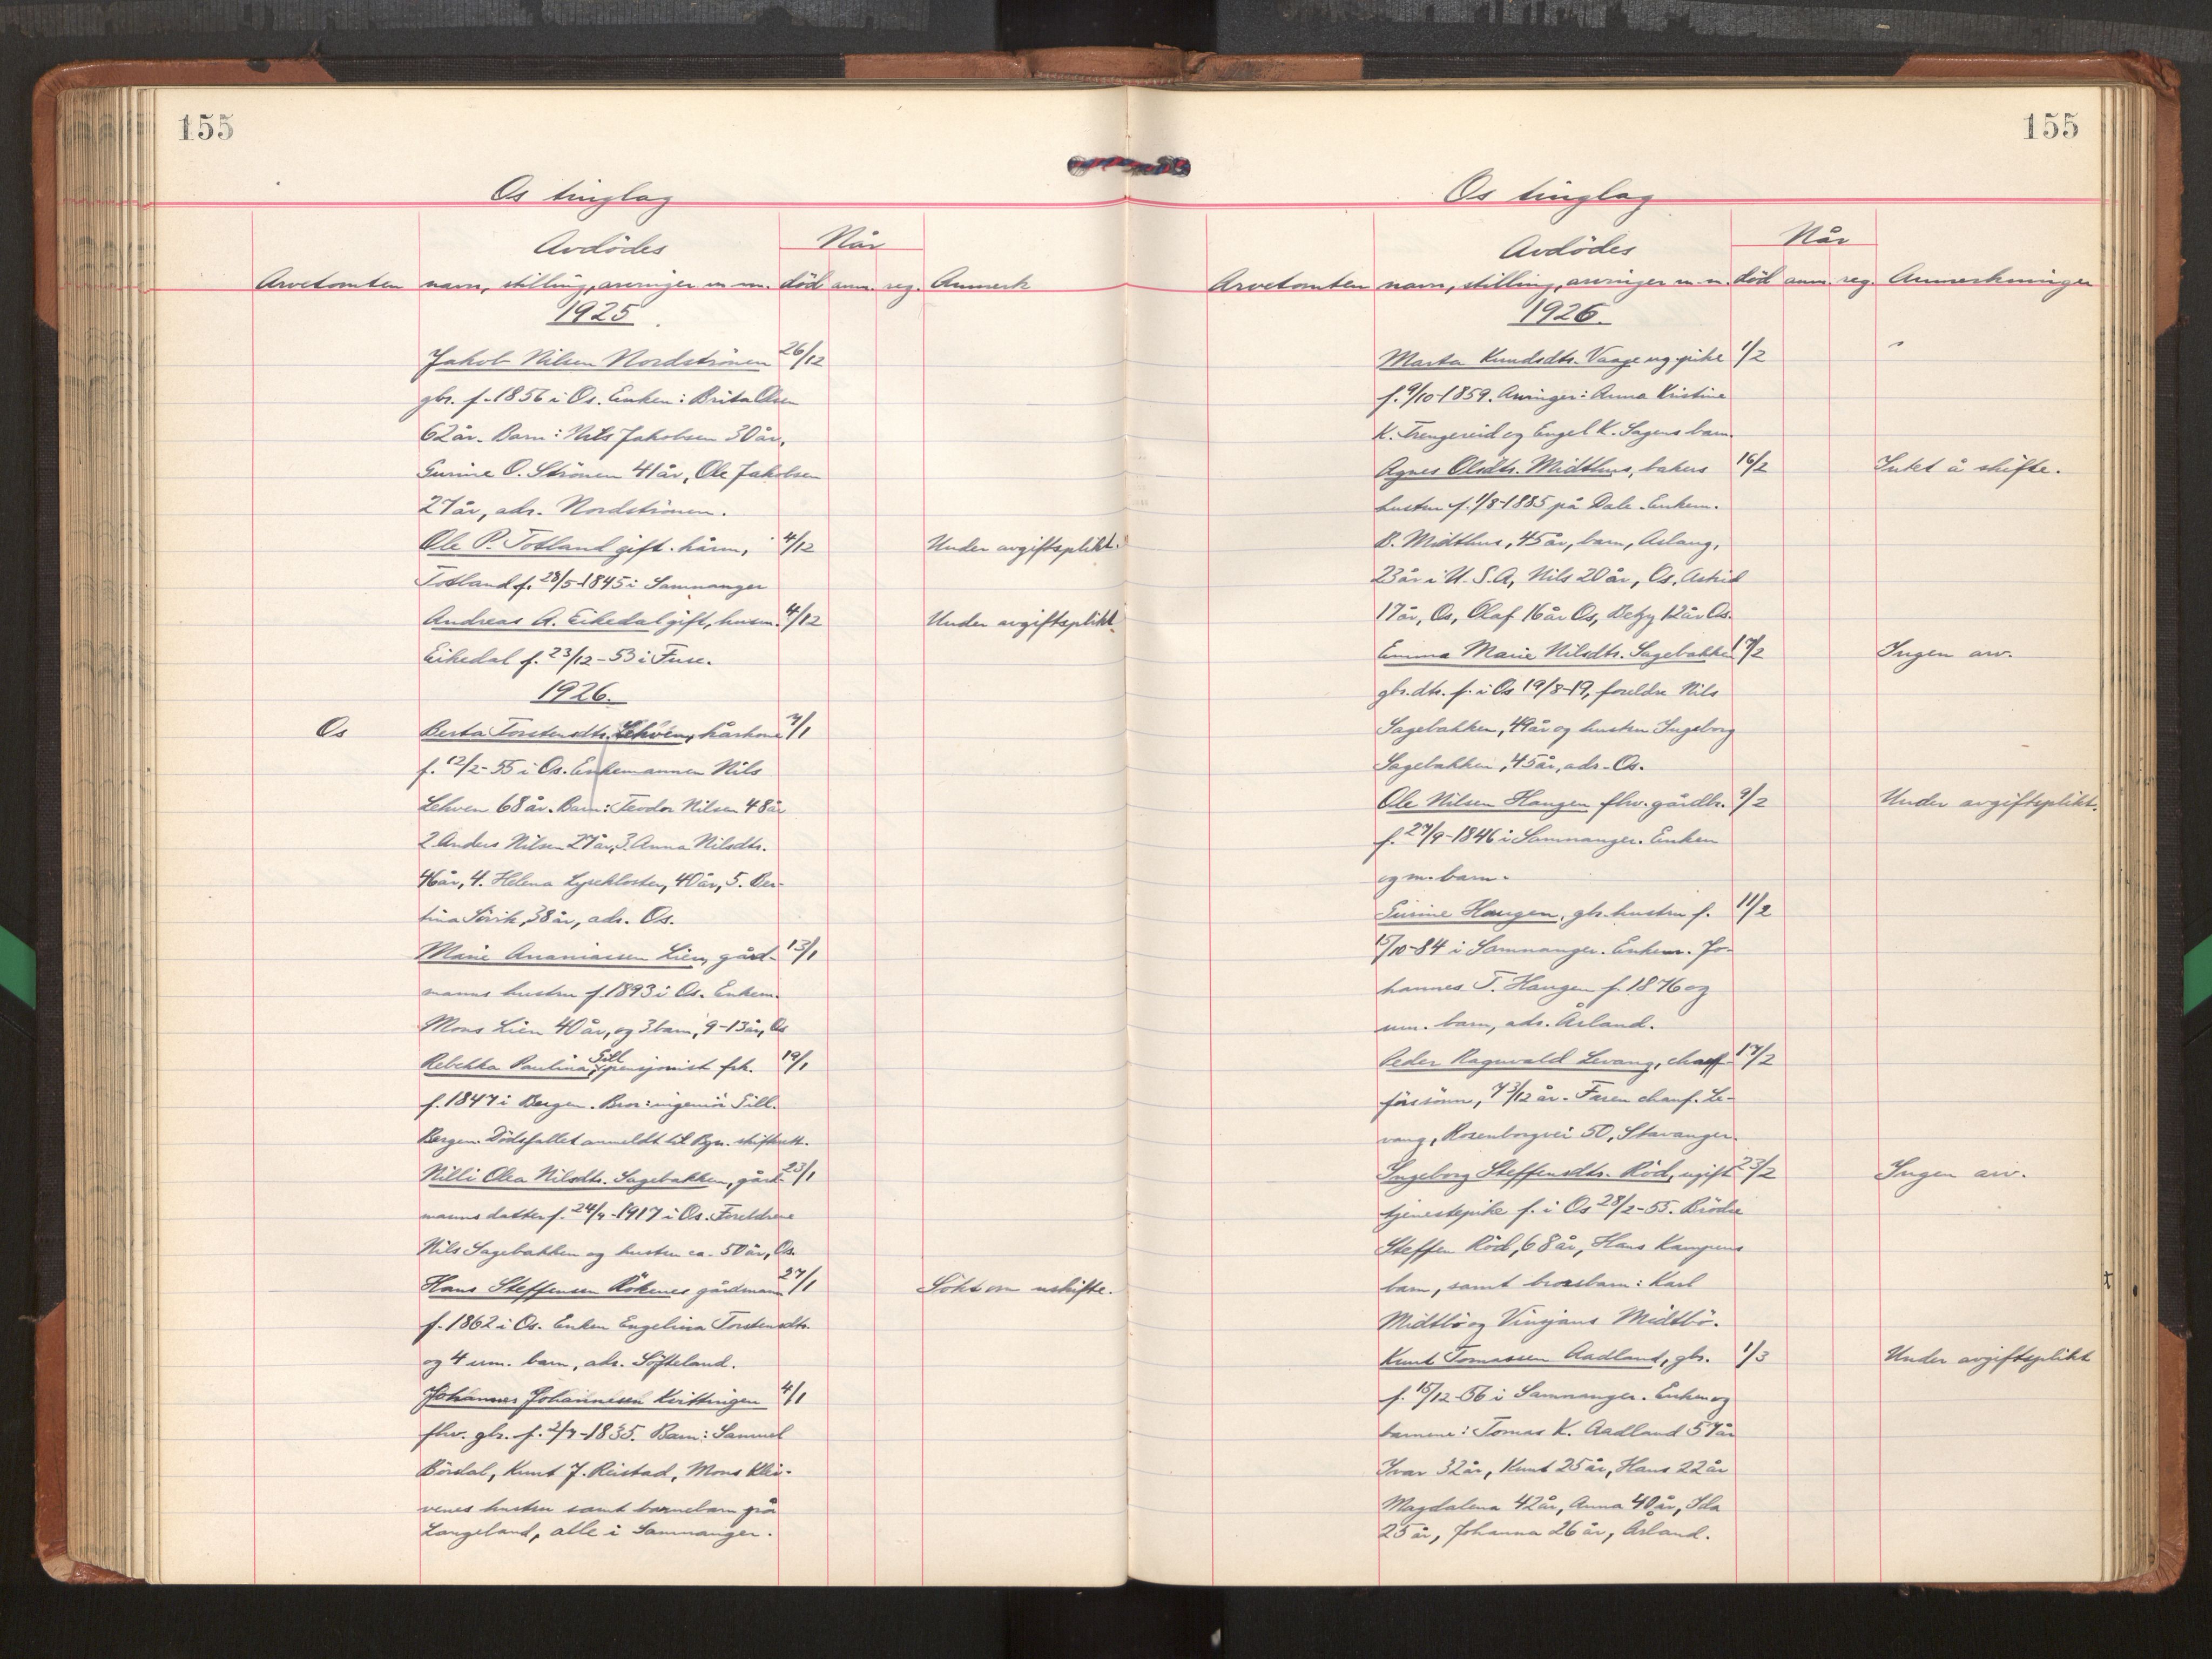 155
Os tinglag
Avdödes
Når
Arvetomten navn, stilling, arvinger m. m. död anm. reg. Anmerk
1925
Jakob Nilsen Nordströnen 26/12
gbr. f. 1856 i Os. Enken: Brita Olsen
62 år. Barn: Nils Jakobsen 30 år,
Gurine O. Strönen 41 år, Ole Jakobsen
27 år, adr. Nordströnen.
Ole P. Totland gift. kårm, 4/12 Under avgiftsplikt.
Totland f. 28/5-1845 i Samnanger
Andreas A. Eikedal gift, husm. 4/12 Under avgiftsplikt.
Eikedal f. 23/12-53 i Fuse.
1926.
Os Berta Torstensdtr. Lekven, kårkone 7/1
f. 12/2-55 i Os. Enkemannen Nils
Lekven 68 år. Barn: Teodor Nilsen 48 år
2 Anders Nilsen 27 år, 3. Anna Nilsdtr.
46 år, 4. Helena Lysekloster, 40 år, 5. Ber-
tina Sörvik, 38 år, adr. Os.
Marie Ananiassen Lien, gård- 13/1
manns hustru f. 1893 i Os. Enkem.
Mons Lien 40 år, og 3 barn, 9-13 år, Os
Rebekka Paulina Gill pensjonist frk. 19/1
f. 1847 i Bergen. Bror: ingeniör Gill.
Bergen. Dödsfallet anmeldt til Bgn. skifterett.
Nilli Olea Nilsdtr. Sagebakken, gård- 23/1
manns datter f. 24/4-1917 i Os. Foreldrene
Nils Sagebakken og hustru ca. 50 år, Os.
Hans Steffensen Rökenes gårdmann 27/1 Sökt om uskifte.
f. 1862 i Os. Enken Engelina Torstensdtr.
og 4 um. barn, adr. Söfteland.
Johannes Johannesen Kvittingen 4/1
fhv. gbr. f. 2/7-1835. Barn: Samuel
Bördal, Knut J. Reistad, Mons Klei-
venes hustru samt barnebarn på
Langeland, alle i Samnanger.
155
Os tinglag
Avdödes
Når
Arvetomten navn, stilling, arvinger m. m. död anm. reg. Anmerkninger
1926.
Marta Knudsdtr. Vaage ug. pike 1/2
f. 9/10-1859. Arvinger: Anna Kristine
K. Trengereid og Engel K. Sagens barn.
Agnes Olsdtr. Midthus, bakers 16/2 Intet å skifte.
hustru f. 1/8-1885 på Dale. Enkem.
B. Midthus, 45 år, barn, Aslaug,
23 år i U. S. A, Nils 20 år, Os, Astrid
17 år, Os, Olaf 16 år Os, Betzy 12 år Os.
Emma Marie Nilsdtr. Sagebakken 17/2 Ingen arv.
gbr. dtr. f. i Os 19/8-19, foreldre Nils
Sagebakken, 49 år og hustru Ingeborg
Sagebakken, 45 år, adr. Os.
Ole Nilsen Haugen fhv. gårdbr. 9/2 Under avgiftsplikt.
f. 27/9-1846 i Samnanger. Enken
og m. barn.
Gurine Haugen, gbr. hustru f. 11/2
15/10-84 i Samnanger. Enkem. Jo-
hannes T. Haugen f. 1876 og
um. barn, adr. Årland.
Peder Ragnvald Levang, chauf- 17/2
försönn, 7 3/12 år. Faren chauf. Le-
vang, Rosenborgvei 50, Stavanger.
Ingeborg Steffensdtr. Röd, ugift 23/2 Ingen arv.
tjenestepike f. i Os 28/2-55. Brödre
Steffen Röd, 68 år, Hans Kampens
barn, samt brorsbarn: Karl
Midtbö og Vinjans Midtbö.
Knut Tomassen Aadland, gbr. 1/3 Under avgiftsplikt
f. 15/12-56 i Samnanger. Enken og
barnene: Tomas K. Aadland 37 år
Ivar 32 år, Knut 25 år, Hans 22 år
Magdalena 42 år, Anna 40 år, Ida
25 år, Johanna 26 år, Årland.